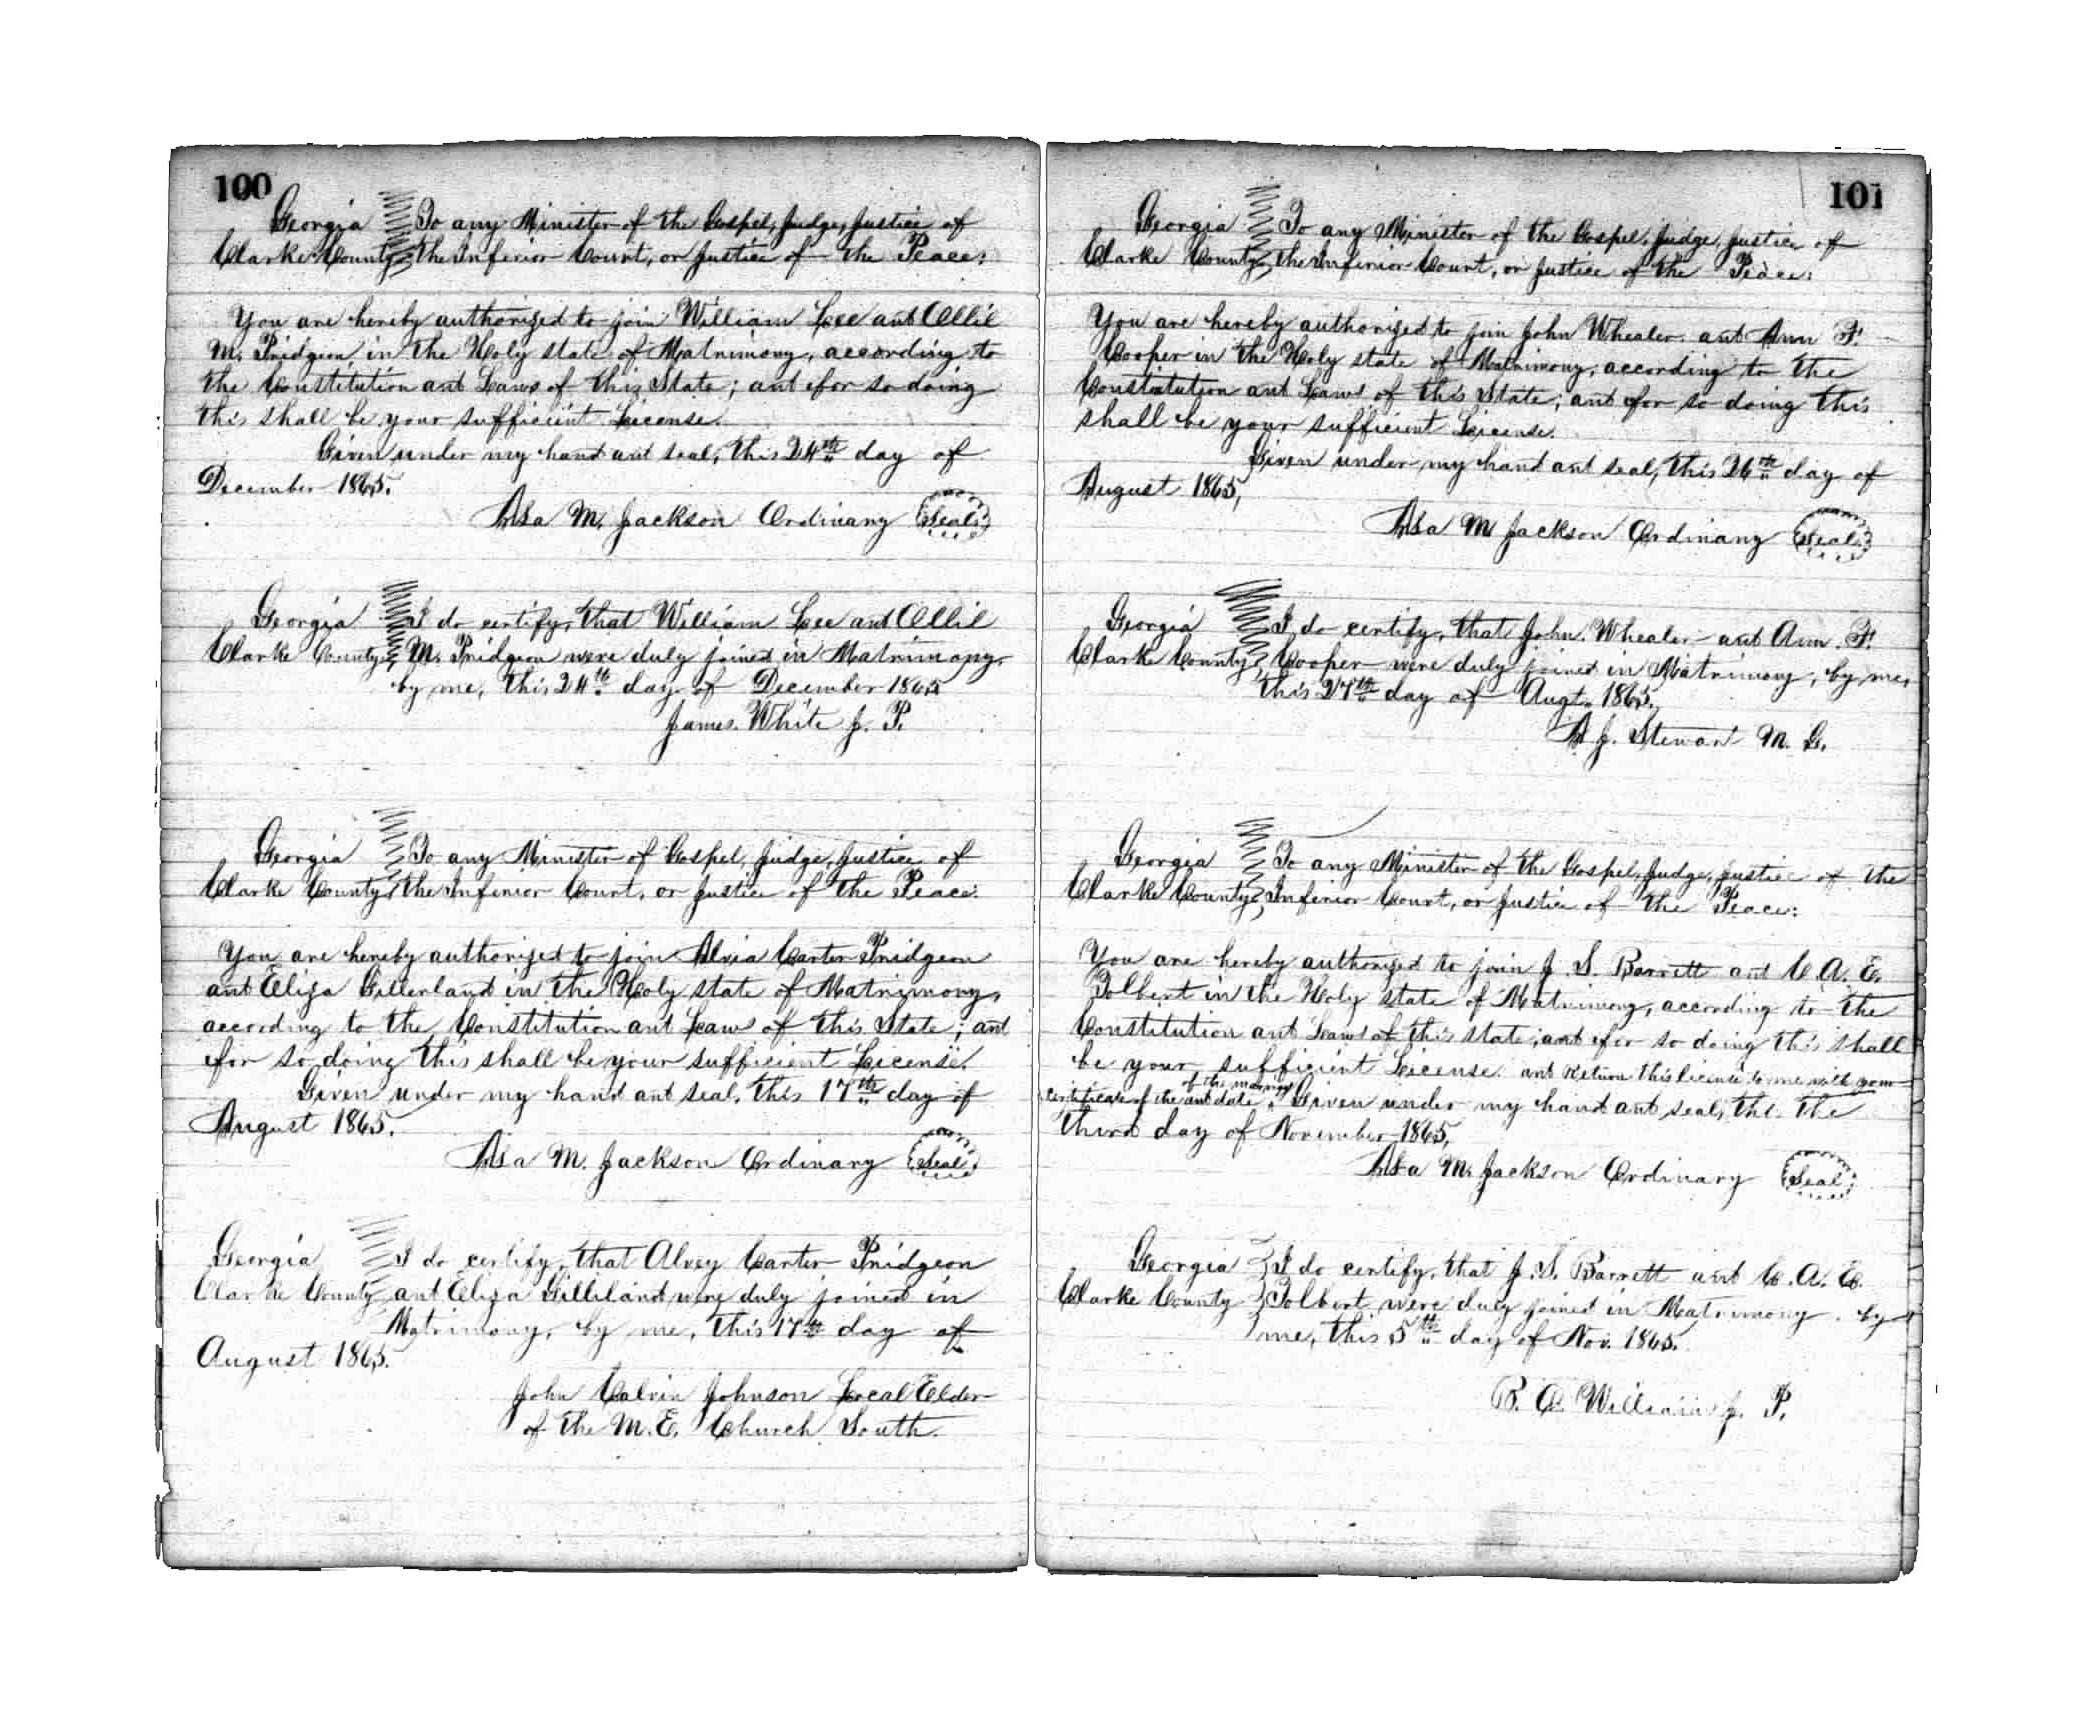 100
Georgia To any Minister of the Gospel, Judge, Justice of
Clarke County the Inferior Court, or Justice of the Peace:
You are hereby authorized to join William Lee and Ollie
M. Pridgeon in the Holy state of Matrimony, according to
the Constitution and Laws of this State; and for so doing
this shall be your sufficient License.
Given under my hand and seal, this 24th day of
December 1865.
Asa M. Jackson Ordinary Seal
Georgia I do certify, that William Lee and Ollie
Clarke County M. Pridgeon were duly joined in Matrimony,
by me, this 24th day of December 1865
James White J. P.
Georgia To any Minister of Gospel, Judge, Justice of
Clarke County the Inferior Court, or Justice of the Peace:
You are hereby authorized to join Alvia Carter Pridgeon
and Eliza Gillerland in the Holy state of Matrimony,
according to the Constitution and Laws of this State; and
for so doing this shall be your sufficient License.
Given under my hand and seal, this 17th day of
August 1865.
Asa M. Jackson Ordinary Seal
Georgia I do certify, that Alvey Carter Pridgeon
Clarke County and Eliza Gilliland were duly joined in
Matrimony, by me, this 17th day of
August 1865.
John Calvin Johnson Local Elder
of the M. E. Church South.
101
Georgia To any Minister of the Gospel, Judge, Justice of
Clarke County the Inferior Court, or Justice of the Peace:
You are hereby authorized to join John Whealer and Ann F.
Cooper in the Holy state of Matrimony, according to the
Constitution and Laws of this State; and for so doing this
shall be your sufficient License.
Given under my hand and seal, this 26th day of
August 1865,
Asa M Jackson Ordinary Seal
Georgia I do certify, that John Whealer and Ann F.
Clarke County Cooper were duly joined in Matrimony, by me,
this 27th day of Augt. 1865.
A J. Stewart M. G.
Georgia To any Minister of the Gospel, Judge, Justice of the
Clarke County Inferior Court, or Justice of the Peace:
You are hereby authorized to join J. S. Barrett and C. A. E.
Tolbert in the Holy state of Matrimony, according to the
Constitution and Laws of this state; and for so doing this shall
be your sufficient License. and Return this licence to me with your
certificate of the and date of the marriage. Given under my hand and seal, this the
third day of November 1865,
Asa M. Jackson Ordinary Seal
Georgia I do certify, that J. S. Barrett and C. A. E.
Clarke County Tolbert were duly joined in Matrimony, by
me, this 5th day of Nov. 1865.
William J. P.